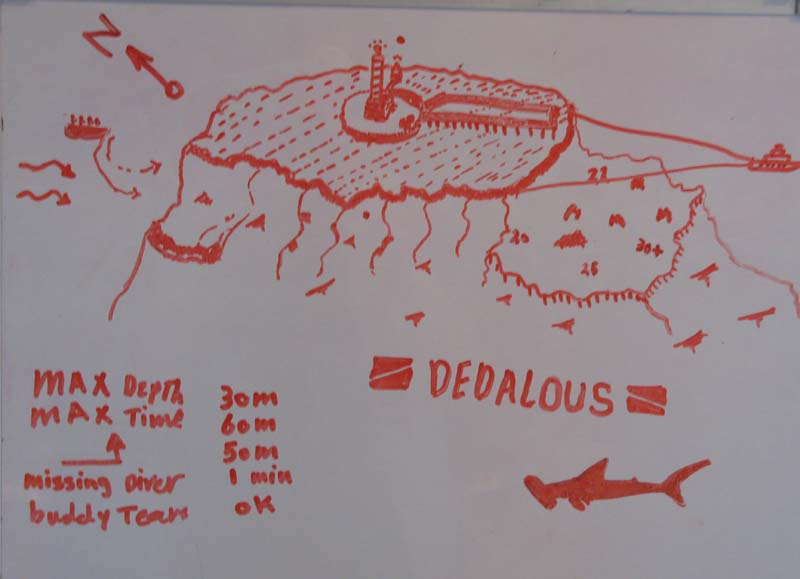 N
22
20
30+
25
DEDALOUS
MAX Depth 30m
MAX Time 60m
50m
missing Diver 1 min
buddy Team OK